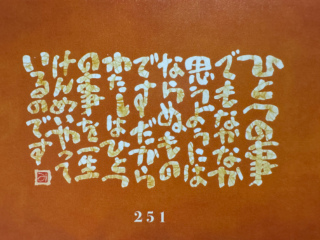 ひとつの事
でもなかなか
思うようには
ならぬもの
です だから
わたしはひとつ
の事を一生
けんめいやって
いるのです
251